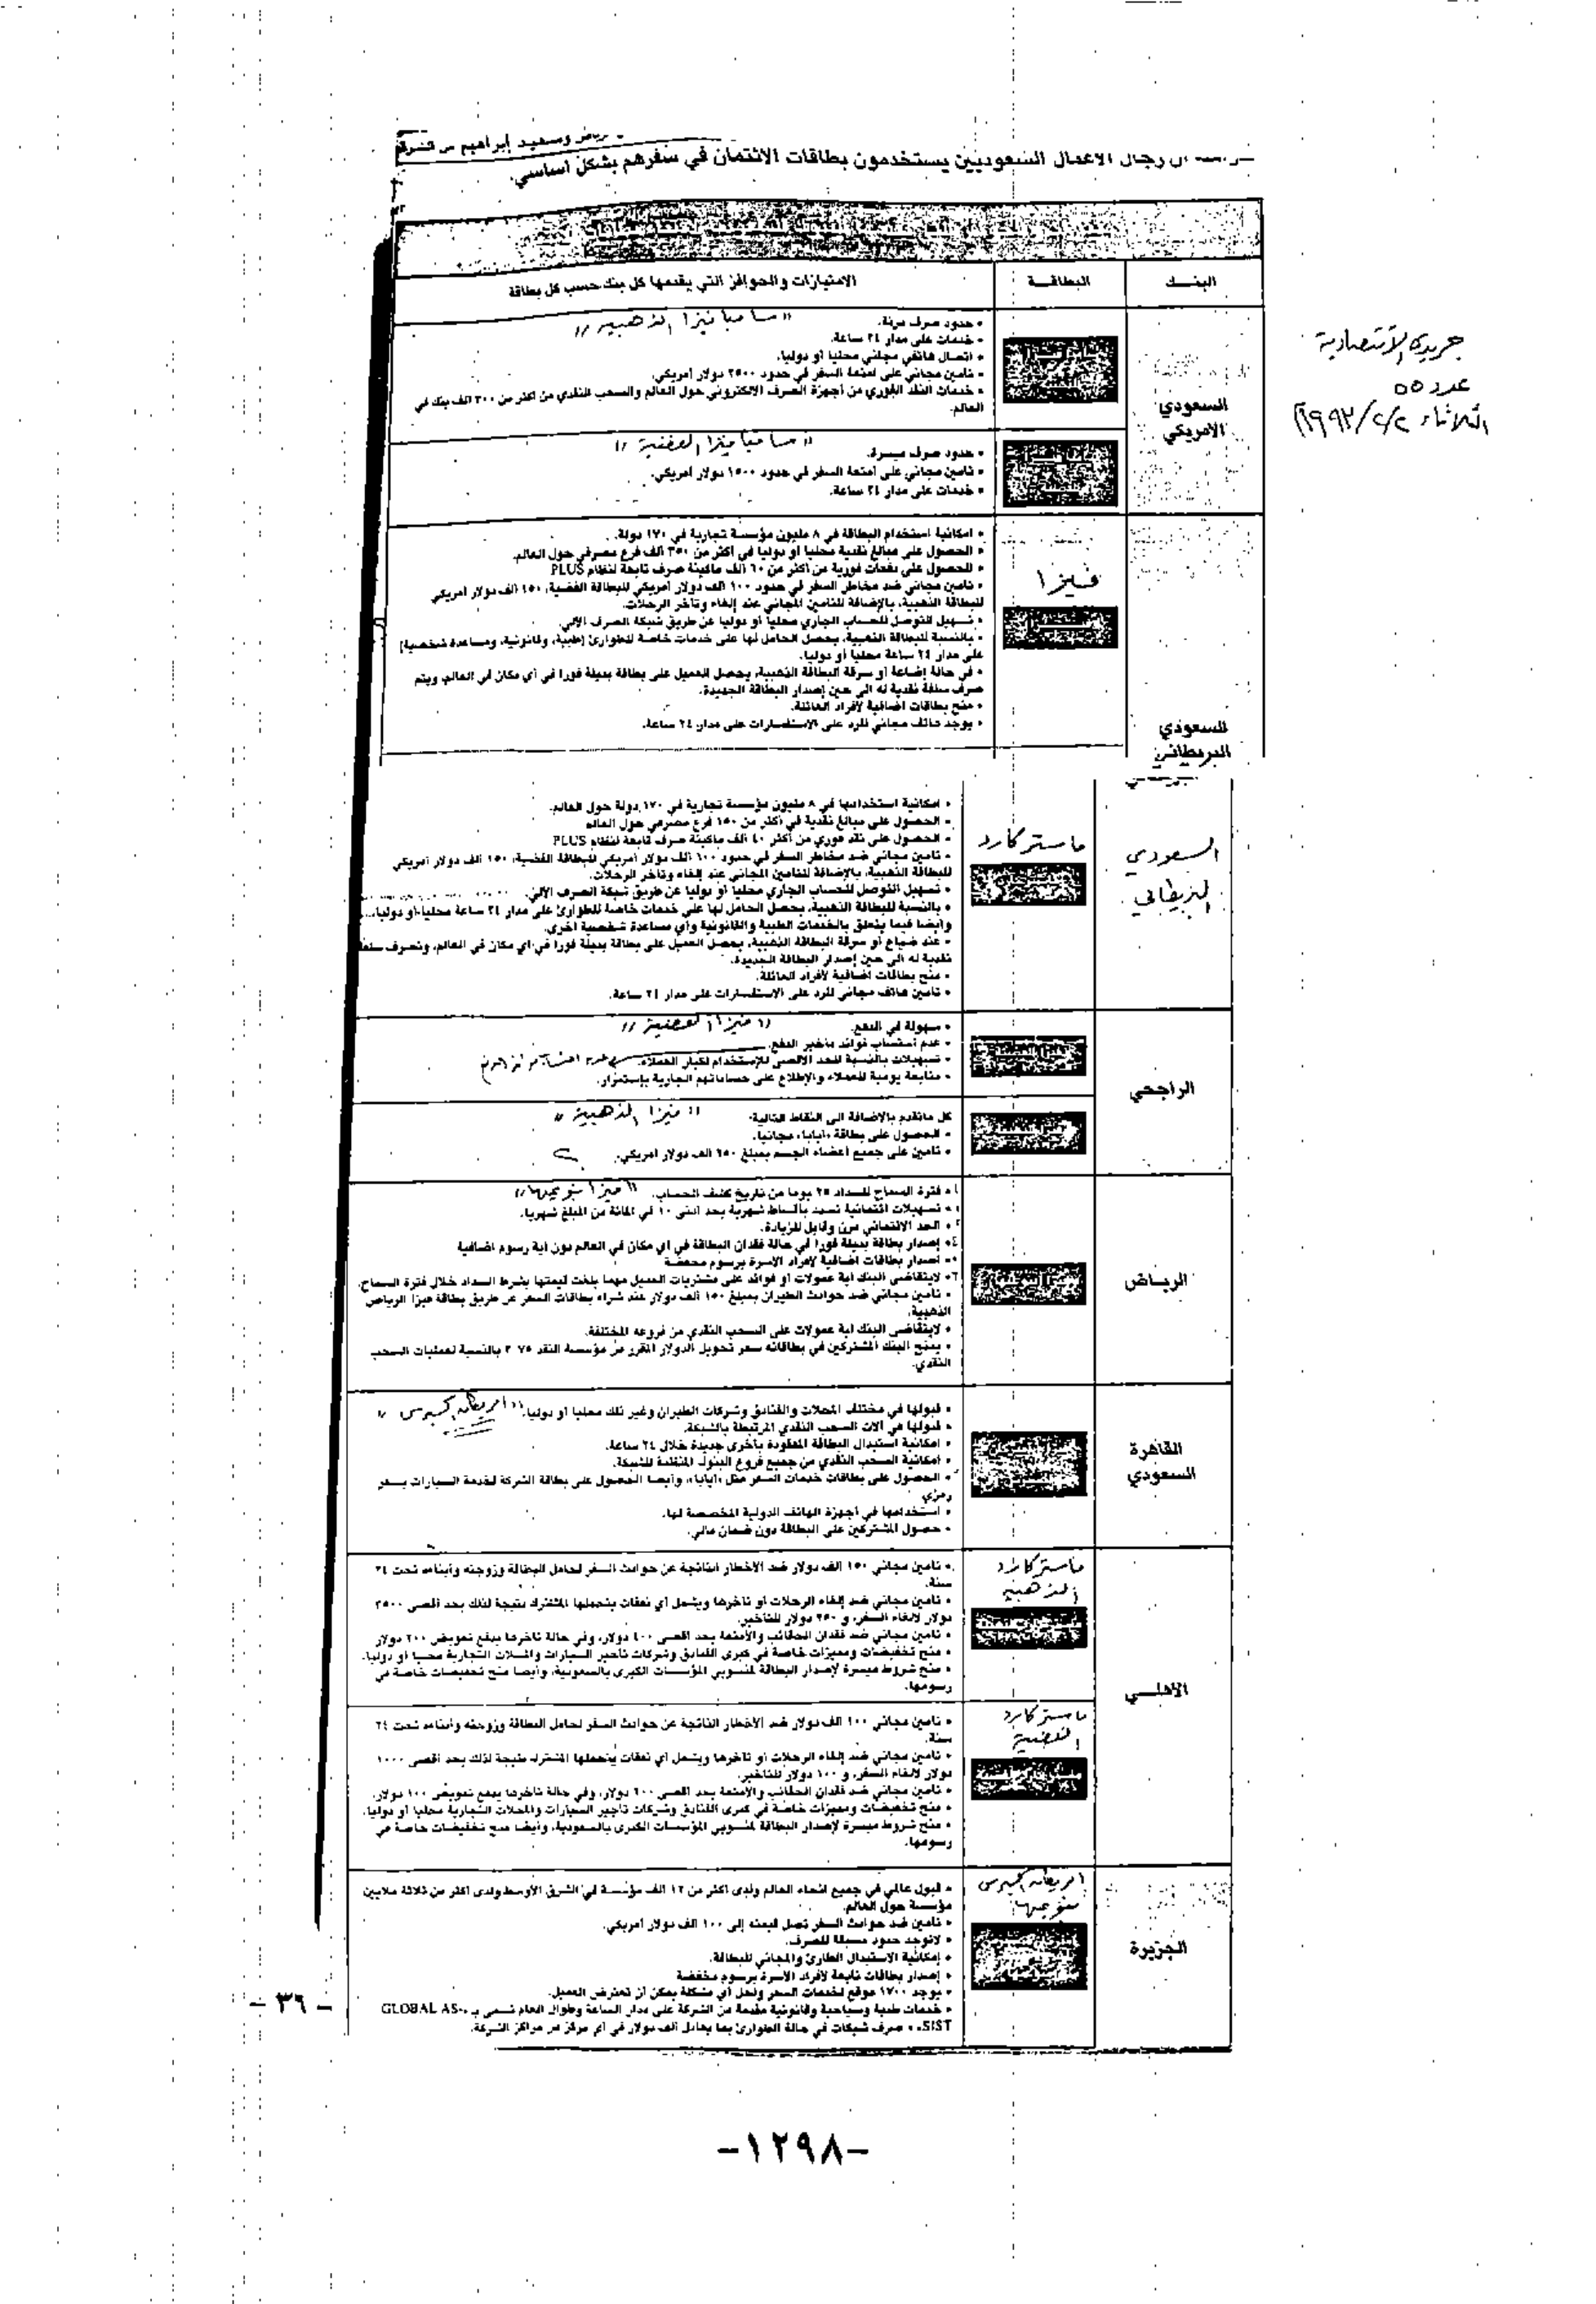 رياض وسعيد إبراهيم من
ان رجال الاعمال السعوديين يستخدمون بطاقات الائتمان في سفرهم بشكل أساسي.
البنـك
البطاقـة
الامتيازات والحوافز التي يقدمها كل بنك حسب كل بطاقة
جريدة الاقتصادية
عدد ٥٥
الثلاثاء
السعودي
الأمريكي
"سامبا فيزا الذهبية"
• حدود صرف مرنة.
• خدمات على مدار ٢٤ ساعة.
• اتصال هاتفي مجاني محليا أو دوليا.
• تأمين مجاني على امتعة السفر في حدود ٢٥٠٠ دولار أمريكي.
• خدمات النقد الفوري من أجهزة الصرف الالكتروني حول العالم والسحب النقدي من أكثر من ٣٠٠ الف بنك في
العالم.
"سامبا فيزا الفضية"
• حدود صرف ميسرة.
• تأمين مجاني على أمتعة السفر في حدود ١٥٠٠ دولار أمريكي.
• خدمات على مدار ٢٤ ساعة.
السعودي
البريطاني
فيزا
• امكانية استخدام البطاقة في ٨ مليون مؤسسة تجارية في ١٧٠ دولة.
• الحصول على مبالغ نقدية محليا أو دوليا في أكثر من ٣٥٠ ألف فرع مصرفي حول العالم.
• الحصول على دفعات فورية من أكثر من ٦٠ ألف ماكينة صرف تابعة لنظام PLUS
• تأمين مجاني ضد مخاطر السفر في حدود ١٠٠ الف دولار أمريكي للبطاقة الفضية، ١٥٠ ألف دولار أمريكي
للبطاقة الذهبية، بالإضافة للتأمين المجاني عند إلغاء وتأخر الرحلات.
• تسهيل التوصل للحساب الجاري محليا أو دوليا عن طريق شبكة الصرف الآلي.
• بالنسبة للبطاقة الذهبية، يحصل الحامل لها على خدمات خاصة للطوارئ (طبية، وقانونية، ومساعدة شخصية)
على مدار ٢٤ ساعة محليا أو دوليا.
• في حالة إضاعة أو سرقة البطاقة الذهبية، يحصل العميل على بطاقة بديلة فورا في أي مكان في العالم، ويتم
صرف سلفة نقدية له الى حين إصدار البطاقة الجديدة.
• منح بطاقات اضافية لأفراد العائلة.
• يوجد هاتف مجاني للرد على الاستفسارات على مدار ٢٤ ساعة.
السعودي
البريطاني
ماستر كارد
• امكانية استخدامها في ٨ مليون مؤسسة تجارية في ١٧٠ دولة حول العالم.
• الحصول على مبالغ نقدية في أكثر من ١٥٠ فرع مصرفي حول العالم
• الحصول على نقد فوري من أكثر ٤٠ ألف ماكينة صرف تابعة لنظام PLUS
• تأمين مجاني ضد مخاطر السفر في حدود ١٠٠ ألف دولار أمريكي للبطاقة الفضية، ١٥٠ ألف دولار أمريكي
للبطاقة الذهبية، بالإضافة للتأمين المجاني عند إلغاء وتأخر الرحلات.
• تسهيل التوصل للحساب الجاري محليا أو دوليا عن طريق شبكة الصرف الآلي.
• بالنسبة للبطاقة الذهبية، يحصل الحامل لها على خدمات خاصة للطوارئ على مدار ٢٤ ساعة محليا أو دوليا،
وأيضا فيما يتعلق بالخدمات الطبية والقانونية وأي مساعدة شخصية أخرى.
• عند ضياع أو سرقة البطاقة الذهبية، يحصل العميل على بطاقة بديلة فورا في أي مكان في العالم، وتصرف سلفة
نقدية له الى حين إصدار البطاقة الجديدة.
• منح بطاقات اضافية لأفراد العائلة.
• تأمين هاتف مجاني للرد على الاستفسارات على مدار ٢٤ ساعة.
الراجحي
"فيزا الفضية"
• سهولة في الدفع.
• عدم احتساب فوائد تأخير الدفع.
• تسهيلات بالنسبة للحد الأقصى للإستخدام لكبار العملاء.
• متابعة يومية للعملاء والإطلاع على حساباتهم الجارية بإستمرار.
"فيزا الذهبية"
كل ماتقدم بالإضافة الى النقاط التالية:
• الحصول على بطاقة «ايابا» مجانيا.
• تأمين على جميع أعضاء الجسم بمبلغ ٢٥٠ الف دولار أمريكي.
الرياض
"فيزا بنوعيها"
• فترة السماح للسداد ٢٥ يوما من تاريخ كشف الحساب.
• تسهيلات ائتمانية تسدد بأقساط شهرية بحد أدنى ١٠ في المائة من المبلغ شهريا.
• الحد الائتماني مرن وقابل للزيادة.
٤• إصدار بطاقة بديلة فورا في حالة فقدان البطاقة في أي مكان في العالم دون أية رسوم اضافية
• اصدار بطاقات اضافية لأفراد الأسرة برسوم مخفضة
٦• لايتقاضى البنك أية عمولات أو فوائد على مشتريات العميل مهما بلغت قيمتها بشرط السداد خلال فترة السماح.
• تأمين مجاني ضد حوادث الطيران بمبلغ ١٥٠ ألف دولار عند شراء بطاقات السفر عن طريق بطاقة فيزا الرياض
الذهبية.
• لايتقاضى البنك اية عمولات على السحب النقدي من فروعه المختلفة.
• يمنح البنك المشتركين في بطاقاته سعر تحويل الدولار المقرر من مؤسسة النقد ٣.٧٥ بالنسبة لعمليات السحب
النقدي.
القاهرة
السعودي
"امريكان اكسبرس"
• قبولها في مختلف المحلات والفنادق وشركات الطيران وغير ذلك محليا أو دوليا.
• قبولها في آلات السحب النقدي المرتبطة بالشبكة.
• امكانية استبدال البطاقة المفقودة بأخرى جديدة خلال ٢٤ ساعة.
• امكانية السحب النقدي من جميع فروع البنوك المنظمة للشبكة.
• الحصول على بطاقات خدمات السفر مثل «ايابا»، وأيضا الحصول على بطاقة الشركة لخدمة السيارات بسعر
رمزي
• استخدامها في أجهزة الهاتف الدولية المخصصة لها.
• حصول المشتركين على البطاقة دون ضمان مالي.
الأهلـي
ماستر كارد
الذهبية
• تأمين مجاني ١٥٠ الف دولار ضد الأخطار الناتجة عن حوادث السفر لحامل البطاقة وزوجته وأبنائه تحت ٢٤
سنة.
• تأمين مجاني ضد إلغاء الرحلات أو تأخرها ويشمل أي نفقات يتحملها المشترك نتيجة لذلك بحد أقصى ٢٥٠٠
دولار لالغاء السفر، و ٢٥٠ دولار للتأخير.
• تأمين مجاني ضد فقدان الحقائب والأمتعة بحد أقصى ٤٠٠ دولار، وفي حالة تأخرها يدفع تعويض ٢٠٠ دولار
• منح تخفيضات ومميزات خاصة في كبرى الفنادق وشركات تأجير السيارات والمحلات التجارية محليا أو دوليا.
• منح شروط ميسرة لإصدار البطاقة لمنسوبي المؤسسات الكبرى بالسعودية، وأيضا منح تخفيضات خاصة في
رسومها.
ماستر كارد
الفضية
• تأمين مجاني ١٠٠ الف دولار ضد الأخطار الناتجة عن حوادث السفر لحامل البطاقة وزوجته وأبنائه تحت ٢٤
سنة.
• تأمين مجاني ضد إلغاء الرحلات أو تأخرها ويشمل أي نفقات يتحملها المشترك نتيجة لذلك بحد أقصى ١٠٠٠
دولار لالغاء السفر، و ١٠٠ دولار للتأخير.
• تأمين مجاني ضد فقدان الحقائب والأمتعة بحد أقصى ٢٠٠ دولار، وفي حالة تأخرها يدفع تعويض ١٠٠ دولار.
• منح تخفيضات ومميزات خاصة في كبرى الفنادق وشركات تأجير السيارات والمحلات التجارية محليا أو دوليا.
• منح شروط ميسرة لإصدار البطاقة لمنسوبي المؤسسات الكبرى بالسعودية، وأيضا منح تخفيضات خاصة في
رسومها.
الجزيرة
امريكان اكسبرس
بنوعيها
• قبول عالمي في جميع انحاء العالم ولدى أكثر من ١٢ الف مؤسسة في الشرق الأوسط ولدى أكثر من ثلاثة ملايين
مؤسسة حول العالم.
• تأمين ضد حوادث السفر تصل قيمته إلى ١٠٠ الف دولار أمريكي.
• لاتوجد حدود مسبقة للصرف.
• إمكانية الاستبدال الطارئ والمجاني للبطاقة.
• إصدار بطاقات تابعة لأفراد الأسرة برسوم مخفضة
• يوجد ١٧٠٠ موقع لخدمات السفر ولحل أي مشكلة يمكن أن تعترض العميل.
• خدمات طبية وسياحية وقانونية مقدمة من الشركة على مدار الساعة وطوال العام تسمى بـ GLOBAL AS-
SIST. • صرف شيكات في حالة الطوارئ بما يعادل ألف دولار في أي مركز من مراكز الشركة.
- ٣٦ -
-١٢٩٨-